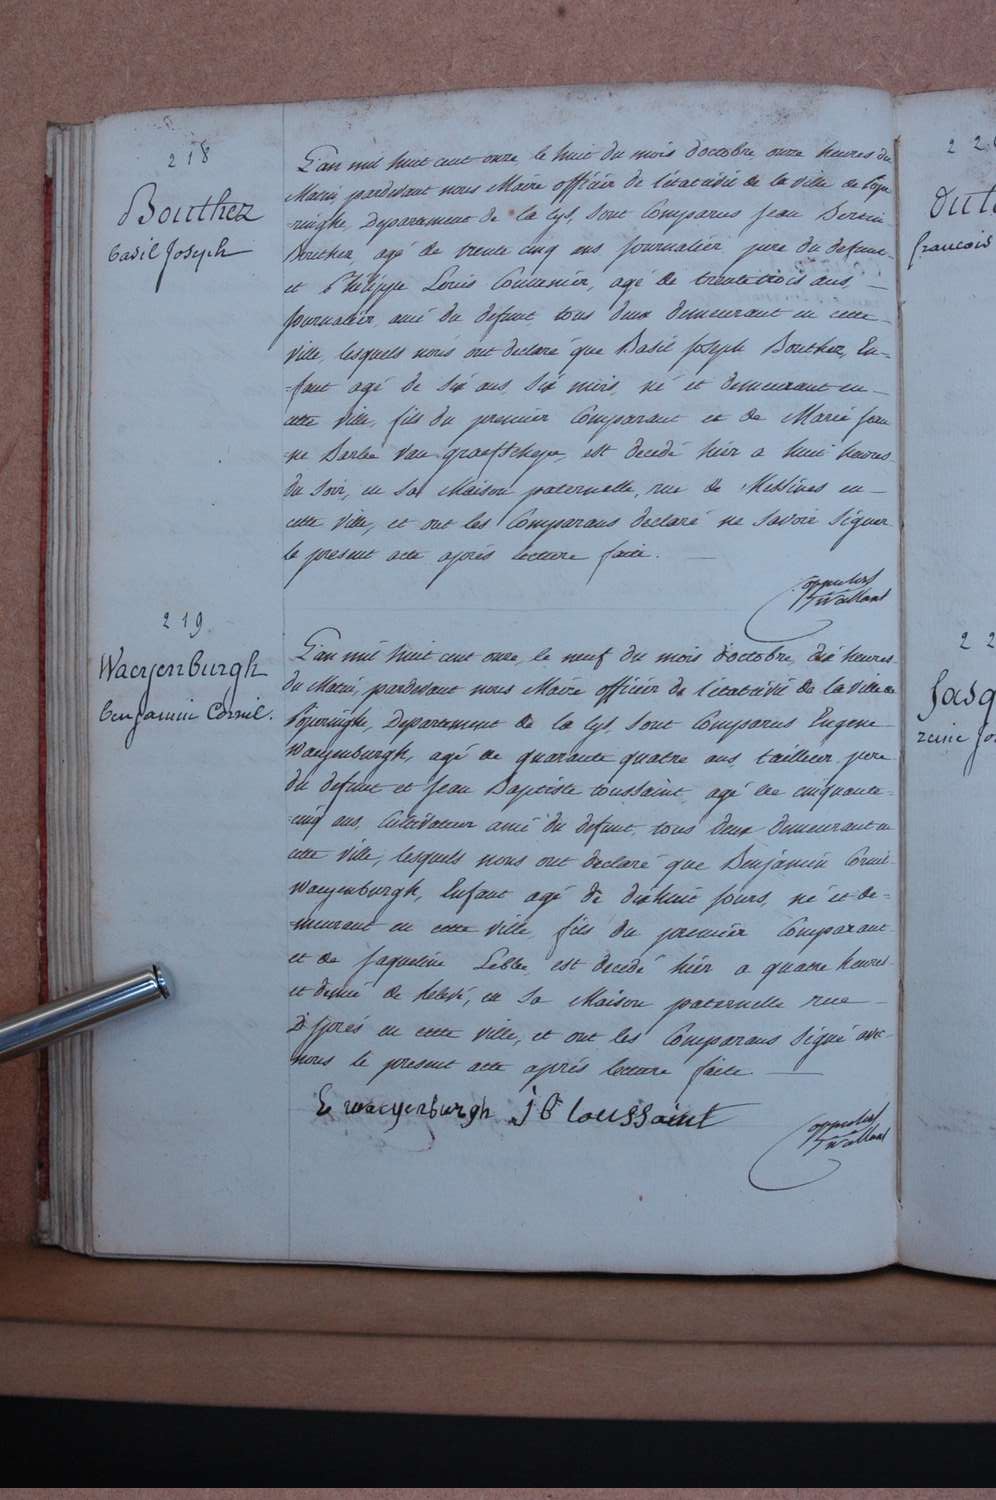 218
Bouthez
basil Joseph
L'an mil huit cent onze le huit du mois d'octobre onze heures du
Matin pardevant nous Maire officier de l'état civil de la ville de Pope
-ringhe, Departement de la Lys, sont Comparus Jean
Bouthez, agé de trente cinq ans journalier pere du defunt
et Philippe Louis agé de trente trois ans,
journalier, ami du defunt, tous deux demeurant en cette
ville, lesquels nous ont declaré que Basil Joseph Bouthez, En-
-fant agé de six ans six mois, né et demeurant en
cette ville, fils du premier Comparant et de Marie Jean
-ne Barbe Van graefschepe, est decedé hier a huit heures
du soir, en sa Maison paternelle, rue de Messines en
cette ville, et ont les Comparans declaré ne savoir signer
le present acte après lecture faite.
219
Waeyenburgh
benjamin Cornil.
L'an mil huit cent onze, le neuf du mois d'octobre, dix heures
du Matin, pardevant nous Maire officier de l'état civil de la ville de
Poperinghe, Departement de la Lys, sont Comparus Eugene
Waeyenburgh, agé de quarante quatre ans tailleur pere
du defunt et Jean Baptiste toussaint, agé de cinquante
-cinq ans, Cultivateur ami du defunt, tous deux demeurant en
cette ville, lesquels nous ont declaré que Benjamin Cornil
Waeyenburgh, Enfant agé de dix huit jours, né et de-
-meurant en cette ville, fils du premier Comparant
et de Jaqueline Lebbe, est decedé hier a quatre heures
et demie de relevé, en sa Maison paternelle rue
D'Ypres en cette ville, et ont les Comparans signé avec
nous le present acte après lecture faite
E waeyenburgh J B toussaint
22
francois
22
Jasq
reine Jo